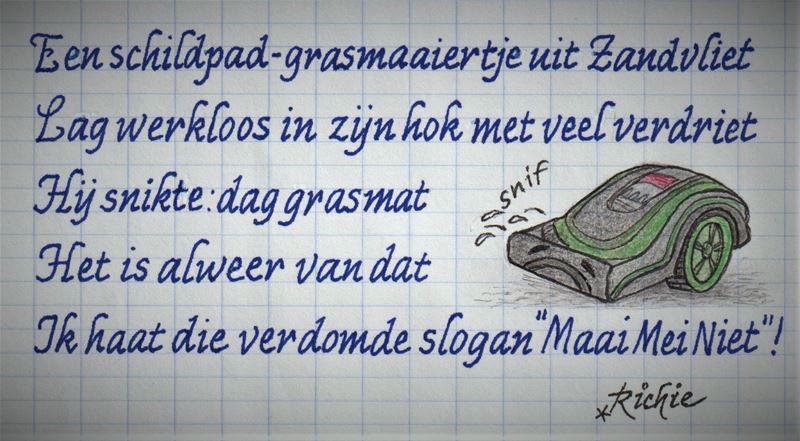 Een schildpad-grasmaaiertje uit Zandvliet
Lag werkloos in zijn hok met veel verdriet
Hij snikte: dag grasmat
snif
Het is alweer van dat
Ik haat die verdomde slogan "Maai Mei Niet"!
*Richie